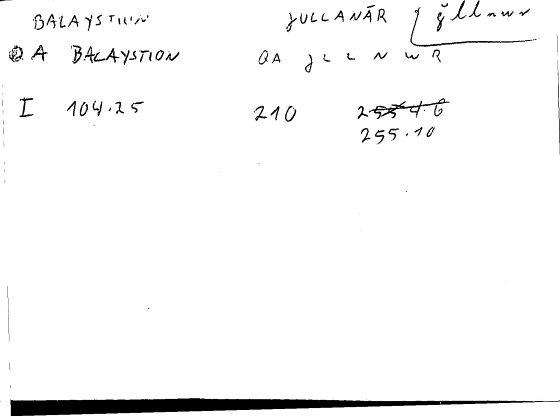 BALAYSTION JULLANĀR ǧllnwr
QA BALAYSTION QA JLLNWR
I 104.25 210 255 4.6
255.10